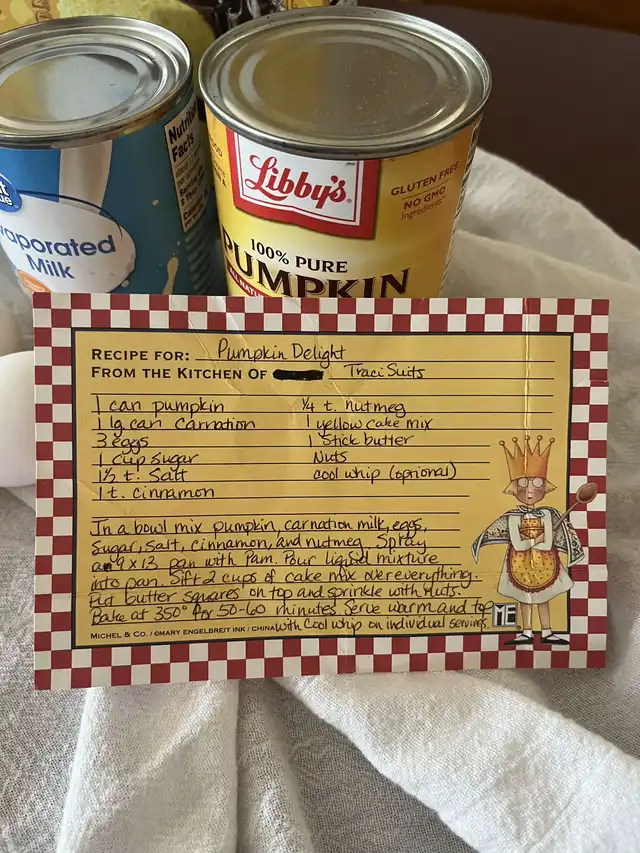 Nutrition
Facts
Evaporated
Milk
Libby's
GLUTEN FREE
NO GMO
Ingredients
100% PURE
PUMPKIN
RECIPE FOR: Pumpkin Delight
FROM THE KITCHEN OF Traci Suits
1 can pumpkin ¼ t. nutmeg
1 lg can carnation 1 yellow cake mix
3 eggs 1 stick butter
1 cup sugar Nuts
1½ t. Salt cool whip (optional)
1 t. cinnamon
In a bowl mix pumpkin, carnation milk, eggs,
sugar, salt, cinnamon, and nutmeg. Spray
a 9 x 13 pan with Pam. Pour liquid mixture
into pan. Sift 2 cups of cake mix over everything.
Put butter squares on top and sprinkle with nuts.
Bake at 350° for 50-60 minutes. Serve warm and top
with cool whip on individual servings.
MICHEL & CO. / ©MARY ENGELBREIT INK / CHINA
ME